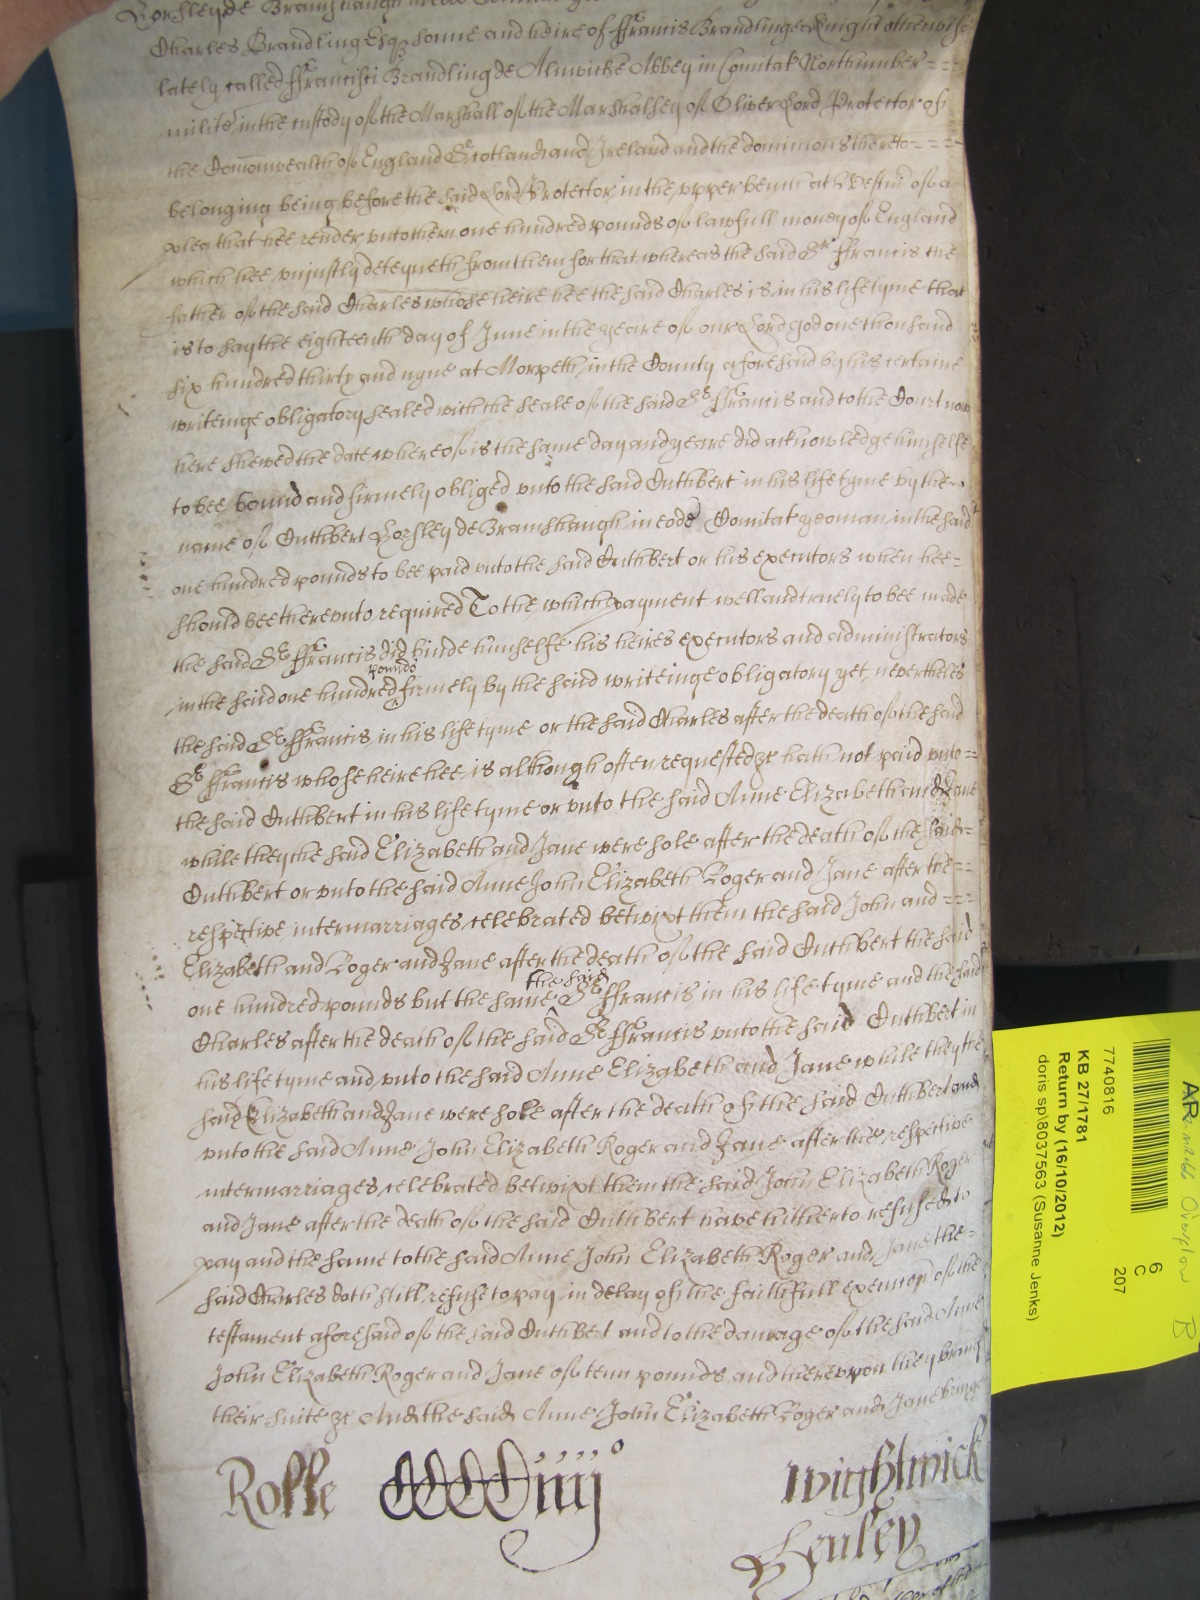 Horsley de Bramshaugh
Charles Brandling Esqr sonne and heire of Sr ffrancis Brandlinge Knight otherwise
lately called ffrancisci Brandling de Alnwicke Abbey in Comitat Northumber
milit in the custody of the Marshall of the Marshalsey of Oliver Lord Protector of
the Comonwealth of England Scotland and Ireland and the dominions thereto
belonging being before the said Lord Protector in the upper bench at Westmr of a
plea that hee render unto them one hundred pounds of lawfull money of England
which hee uniustly deteyneth from them for that whereas the said Sr ffrancis the
father of the said Charles whose heire hee the said Charles is in his life tyme that
is to say the eighteenth day of June in the yeare of our Lord god one thousand
six hundred thirty and nyne at Morpeth in the County aforesaid by his certaine
writeinge obligatory sealed with the seale of the said Sr ffrancis and to the Court now
here shewed the date whereof is the same day and yeare did acknowledge himselfe
to bee bound and firmely obliged unto the said Cuthbert in his life tyme by the
name of Cuthbert Horsley de Bramshaugh in eod Comitat yeoman in the said
one hundred pounds to bee paid unto the said Cuthbert or his executors when hee
should bee thereunto required To the which payment well and truely to bee made
the said Sr ffrancis did binde himselfe his heires executors and administrators
in the said one hundred pounds firmely by the said writeinge obligatory yet nevertheles
the said Sr ffrancis in his life tyme or the said Charles after the death of the said
Sr ffrancis whose heire hee is although often requested &c hath not paid unto
the said Cuthbert in his life tyme or unto the said Anne Elizabeth and Jane
while they the said Elizabeth and Jane were sole after the death of the said
Cuthbert or unto the said Anne John Elizabeth Roger and Jane after the
respective intermarriages celebrated betwixt them the said John and
Elizabeth and Roger and Jane after the death of the said Cuthbert the said
one hundred pounds but the same the said Sr ffrancis in his life tyme and the said
Charles after the death of the said Sr ffrancis unto the said Cuthbert in
his life tyme and unto the said Anne Elizabeth and Jane while they the
said Elizabeth and Jane were sole after the death of the said Cuthbert and
unto the said Anne John Elizabeth Roger and Jane after the respective
intermarriages celebrated betwixt them the said John Elizabeth Roger
and Jane after the death of the said Cuthbert have hitherto refused to
pay and the same to the said Anne John Elizabeth Roger and Jane the
said Charles doth still refuse to pay in delay of the faithfull execucon of the
testament aforesaid of the said Cuthbert and to the damage of the said Anne
John Elizabeth Roger and Jane of tenn pounds and thereupon they bring
their suite &c And the said Anne John Elizabeth Roger and Jane bringe
Rolle CCCCiiij o Wightwick
Henley
AR
Overflow
B
6
C
207
7740816
KB 27/1781
Return by (16/10/2012)
doris sp\8037563 (Susanne Jenks)